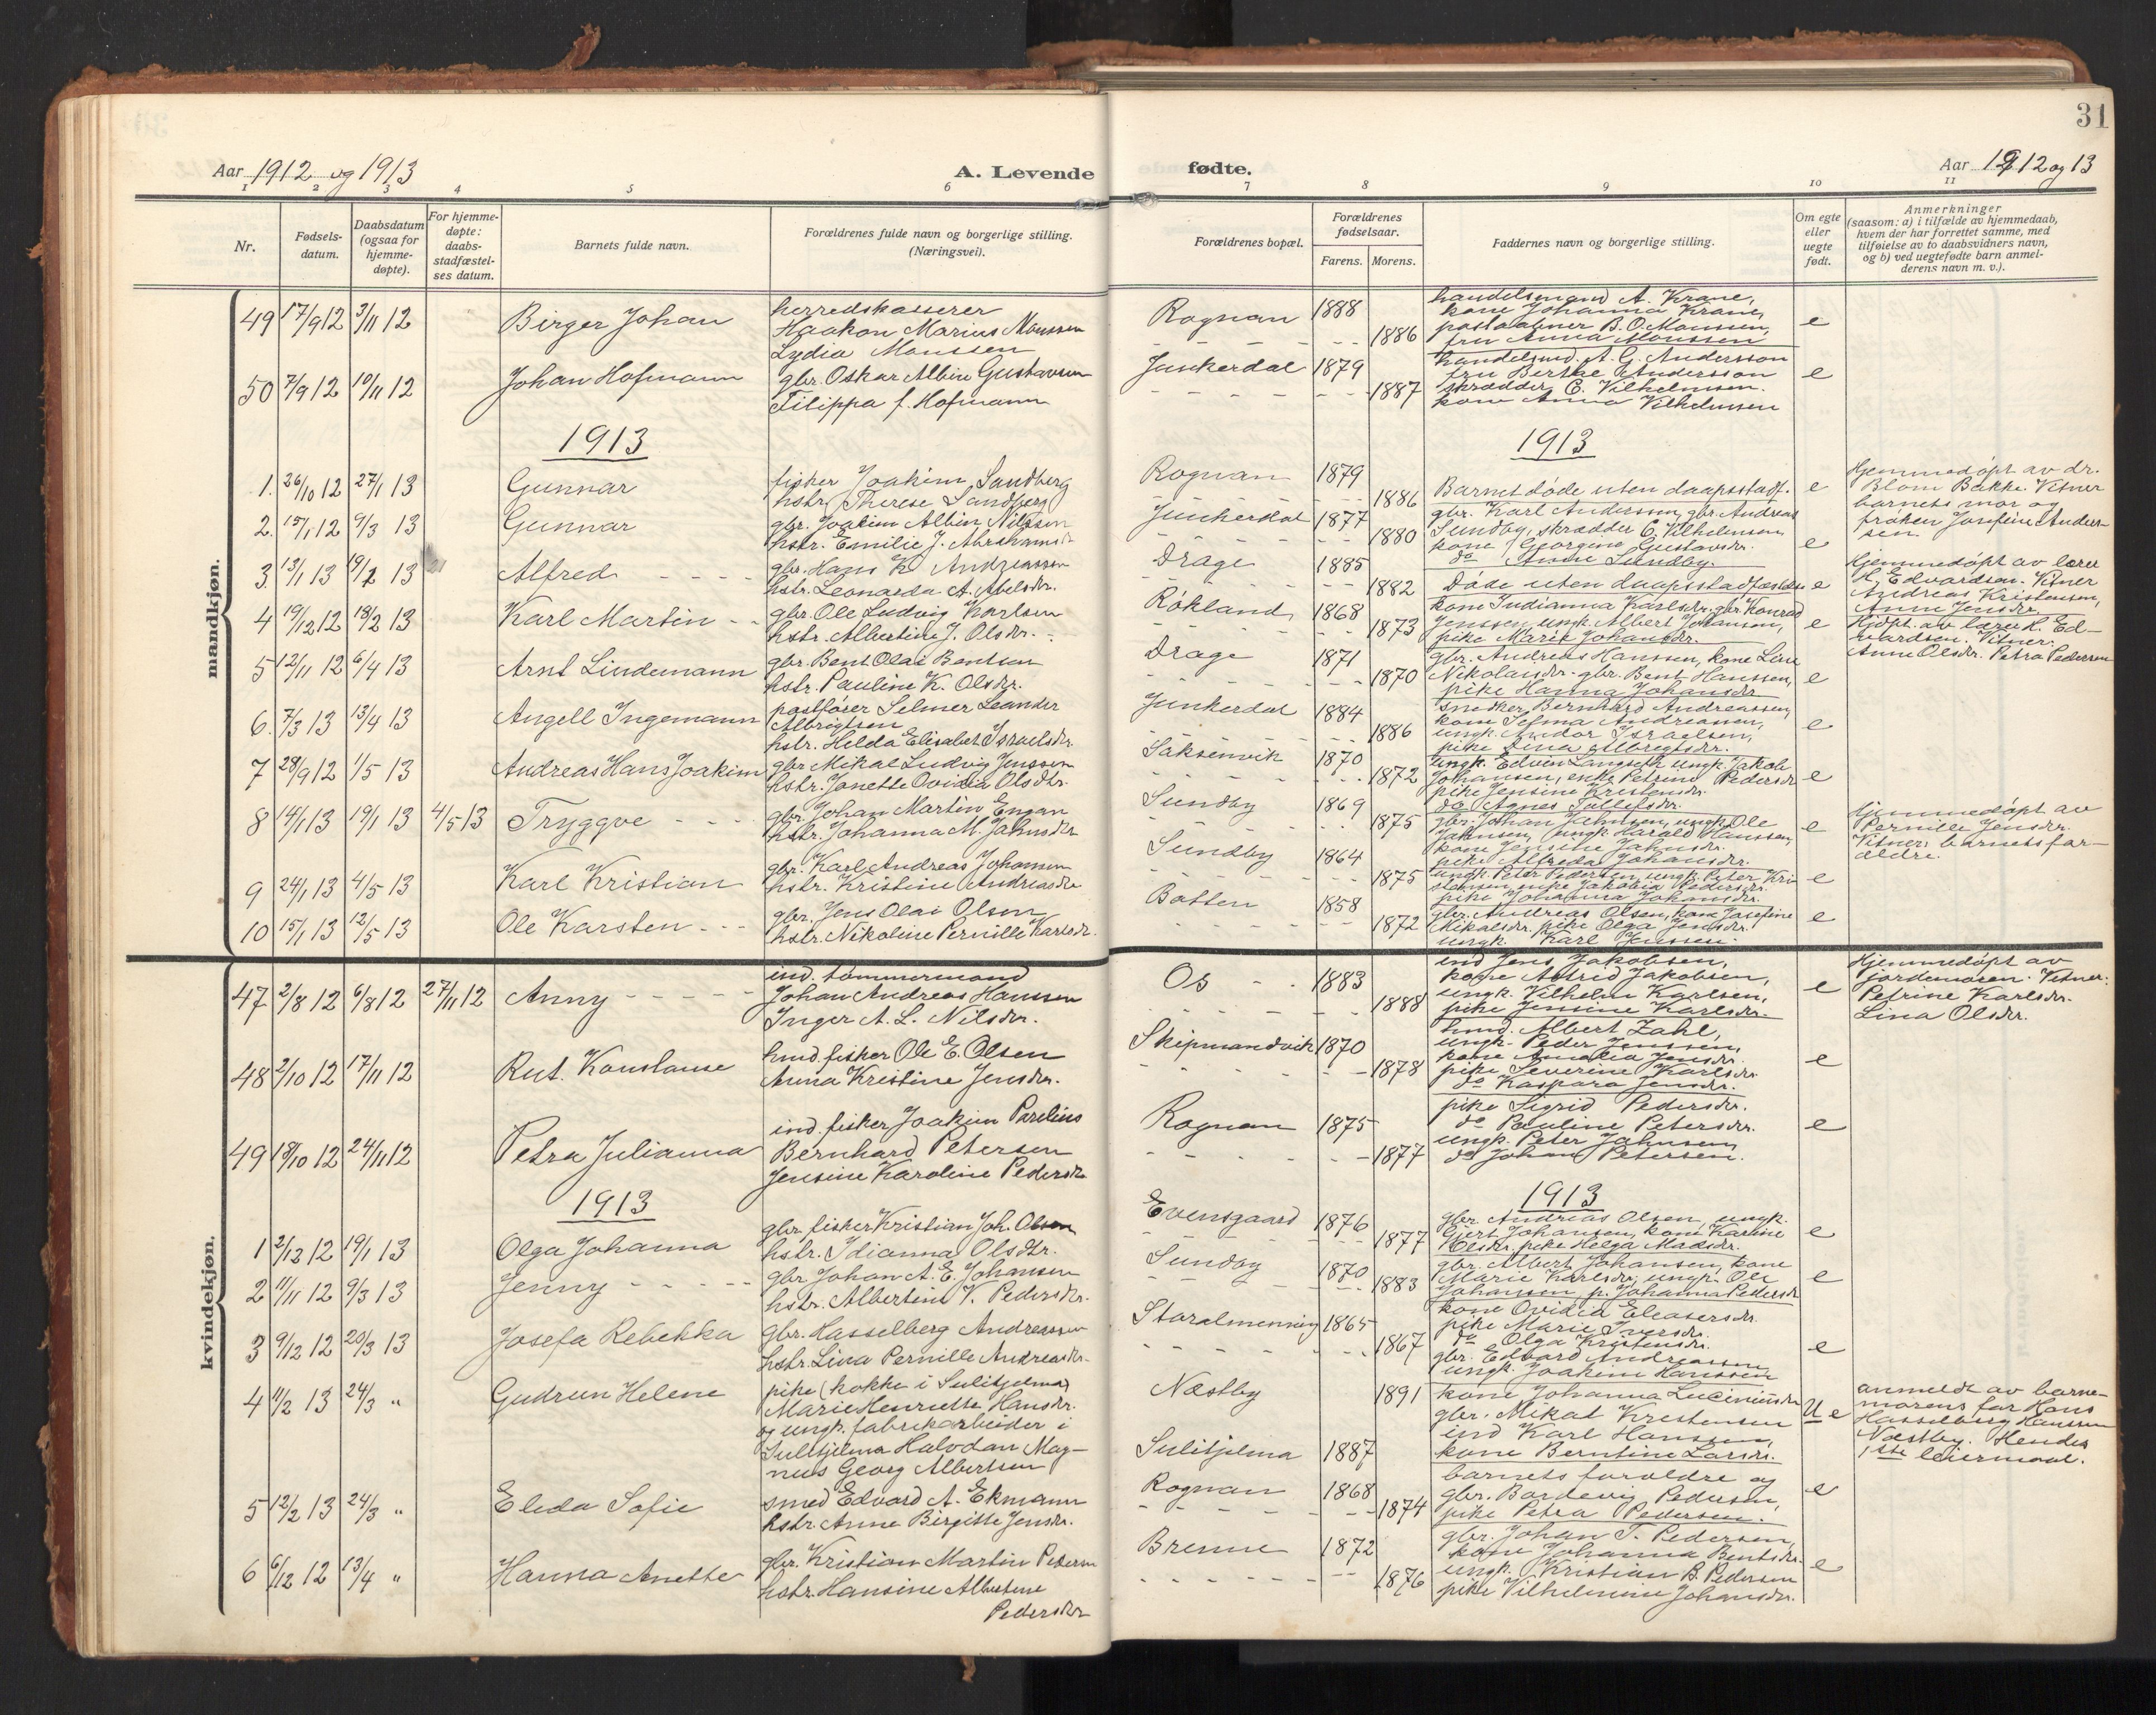 31
Aar 1912 og 1913
A. Levende
fødte.
Aar 1912 og 13
1 2 3 4 5 6 7 8 9 10 11
Nr.
Fødsels-
datum.
Daabsdatum
(ogsaa for
hjemme-
døpte).
For hjemme-
døpte:
daabs-
stadfæstel-
ses datum.
Barnets fulde navn.
Forældrenes fulde navn og borgerlige stilling.
(Næringsvei).
Forældrenes bopæl.
Forældrenes
fødselsaar.
Farens. Morens.
Faddernes navn og borgerlige stilling.
Om egte
eller
uegte
født.
Anmerkninger
(saasom: a) i tilfælde av hjemmedaab,
hvem der har forrettet samme, med
tilføielse av to daabsvidners navn,
og b) ved uegtefødte barn anmel-
derens navn m. v.).
mandkjøn.
49 17/9 12 3/11 12 Birger Johan
herredskasserer
Haakon Marius Monssen
Lydia Monssen
Rognan 1888 1886
handelsmand A. Krane,
kone Johanna Krane,
postaabner B. O. Monssen,
fru Anna Monssen
e
50 7/9 12 10/11 12 Johan Hofmann
gbr. Oskar Albin Gustavsen
Filippa f. Hofmann
Junkerdal 1879 1887
handelsmd. A. G. Andersson
fru Berthe Andersson
skrædder E. Vilhelmsen.
kone Anna Vilhelmsen
e
1913
1913
1. 26/10 12 27/1 13 Gunnar
fisker Joakim Sandberg
hstr. Therese Sandberg
Rognan 1879 1886
Barnet døde uten daapsstadf.
e
Hjemmedøpt av dr.
Blom Bakke. Vitner
barnets mor og
frøken Josefine Ander-
sen.
2. 15/1 12 9/3 13 Gunnar
gbr. Joakim Albin Nilssen
hstr. Emilie J. Abrahamsdr
Junkerdal 1877 1880
gbr. Karl Andersson, gbr. Andreas
Sundby, skrædder E. Vilhelmsen,
kone Georgine Gustavsdr.
do Anne Sundby.
e
3 13/1 13 19/2 13 Alfred
gbr. Hans K. Andreassen
hstr. Leonarda A. Abelsdr.
Drage 1885 1882
Døde uten daapsstadfæstelse
e
Hjemmedøpt av lærer
H. Edvardsen. Vitner
Andreas Kristensen,
Anne Jensdr.
4 19/12 12 18/2 13 Karl Martin
gbr. Ole Ludvig Karlsen
hstr. Albertine J. Olsdr.
Røkland 1868 1873
kone Indianna Karlsdr. gbr. Konrad
Jenssen, ungk. Albert Johansen,
pike Marie Johansdr.
e
Hjdpt. av lærer H. Ed-
vardsen. Vitner:
Anne Olsdr. Petra Pedersen
5 12/11 12 6/4 13 Arnt Lindemann
gbr. Bent Olai Bentsen
hstr. Pauline K. Olsdr.
Drage 1871 1870
gbr. Andreas Hanssen, kone Line
Nikolaisdr. gbr. Bent Hanssen,
pike Hanna Johansdr
e
6. 7/3 13 13/4 13 Angell Ingemann
postfører Selmer Leander
Albrigtsen
hstr. Helda Elisabet Israelsdr.
Junkerdal 1884 1886
snedker Bernhard Andreassen,
kone Selma Andreassen,
ungk. Andor Israelsen,
pike Dina Albregtsdr.
e
7 28/9 12 1/5 13 Andreas Hans Joakim
gbr. Mikal Ludvig Jenssen
hstr. Jonette Ovidia Olsdtr.
Saksenvik 1870 1872
ungk. Edvin Langseth ungk. Jakob
Johansen, enke Petrine Pedersdr
pike Jensine Kristensdr.
do Agnes Tollefsdr.
e
8 14/1 13 19/1 13 4/5 13 Tryggve
gbr. Johan Martin Engan
hstr. Johanna M. Jahnsdr
Sundby 1869 1875
gbr. Johan Jahnsen, ungk. Ole
Jahnsen, ungk. Harald Hanssen,
kone Jensine Jahnsdr.
pike Alfreda Johansdr.
e
Hjemmedøpt av
Pernille Jensdr.
Vitner: barnets for-
ældre.
9 24/1 13 4/5 13 Karl Kristian
gbr. Karl Andreas Johansen
hstr. Kristine Andreasdr
Sundby 1864 1875
ungk. Peter Pedersen, ungk. Peter Kri-
stensen, enke Jakobia Pedersdr.
pike Johanna Johansdr.
e
10 15/1 13 12/5 13 Ole Karsten
gbr. Jens Olai Olsen
hstr. Nikoline Pernille Karlsdr.
Botten 1858 1872
gbr. Andreas Olsen, kone Josefine
Mikalsdr. pike Olga Jensdr.
ungk. Karl Jenssen.
e
kvindekjøn.
47 2/8 12 6/8 12 27/11 12 Anny
ind. tømmermand
Johan Andreas Hanssen
Inger A. L. Nilsdr.
Os 1883 1888
ind Jens Jakobsen,
kone Astrid Jakobsen,
ungk. Vilhelm Karlsen,
pike Jensine Karlsdr.
e
Hjemmedøpt av
jordemoren. Vitner:
Petrine Karlsdr.
Lina Olsdr.
48 2/10 12 17/11 12 Rut. Konstanse
hmd. fisker Ole E. Olsen
Anna Kristine Jensdr.
Skipmandvik 1870 1878
hmd. Albert Zahl,
ungk. Peder Jenssen,
kone Amalia Jensdr.
pike Severine Karlsdr.
do Kaspara Jensdr.
e
49 18/10 12 24/11 12 Petra Julianna
ind. fisker Joakim Parelius
Bernhard Petersen
Jensine Karoline Pedersdr
Rognan 1875 1877
pike Sigrid Pedersdr.
do Pauline Petersdr.
ungk. Peter Jahnsen,
do Johan Petersen.
e
1913
1913
1 2/12 12 19/1 13 Olga Johanna
gbr. fisker Kristian Joh. Olsen
hstr. Idianna Olsdtr.
Evensgaard 1876 1877
gbr Andreas Olsen, ungk.
Gjert Johansen, kone Karline
Olsdr, pike Helga Madsdr.
e
2 11/11 12 9/3 13 Jenny
gbr. Johan A. E. Johansen
hstr. Albertine V. Pedersdr.
Sundby 1870 1883
gbr. Albert Johansen, kone
Marie Karlsdr, ungk. Ole
Johansen, p. Johanna Pedersdr
e
3 9/12 12 20/3 13 Josefa Rebekka
gbr. Hasselberg Andreassen
hstr. Lina Pernille Andreasdr.
Storalmenning 1865 1867
kone Ovidia Eleasersdr
pike Marie Iversdr.
do Olga Kristensdr.
gbr. Edvard Andreassen
ungk. Joakim Hanssen
e
4 11/2 13 24/3 " Gudrun Helene
pike (kokke i Sulitjelma)
Marie Henriette Hansdr.
og ungk. fabrikarbeider i
Sulitjelma Halvdan Mag-
nus Georg Albertsen
Næstby 1891
Sulitjelma 1887
kone Johanna Luciniusdr
gbr. Mikal Kristensen
ind Karl Hanssen,
kone Berntine Larsdr.
U e
anmeldt av barne-
morens far Hans
Hasselberg Hanssen
Næstby. Hendes
1ste leiermaal.
5 12/2 13 24/3 " Eleda Sofie
smed Edvard A. Ekmann
hstr. Anne Birgitte Jensdr.
Rognan 1868 1874
barnets forældre og
gbr. Bardevig Pedersen,
pike Petra Pedersen.
e
6 6/12 12 13/4 " Hanna Anette
gbr. Kristian Martin Pedersen
hstr. Hansine Albertine
Pedersdr
Brenne 1872 1876
gbr. Johan T. Pedersen,
kone Johanna Bentsdr.
ungk. Kristian B. Pedersen
pike Vilhelmine Johansdr.
e